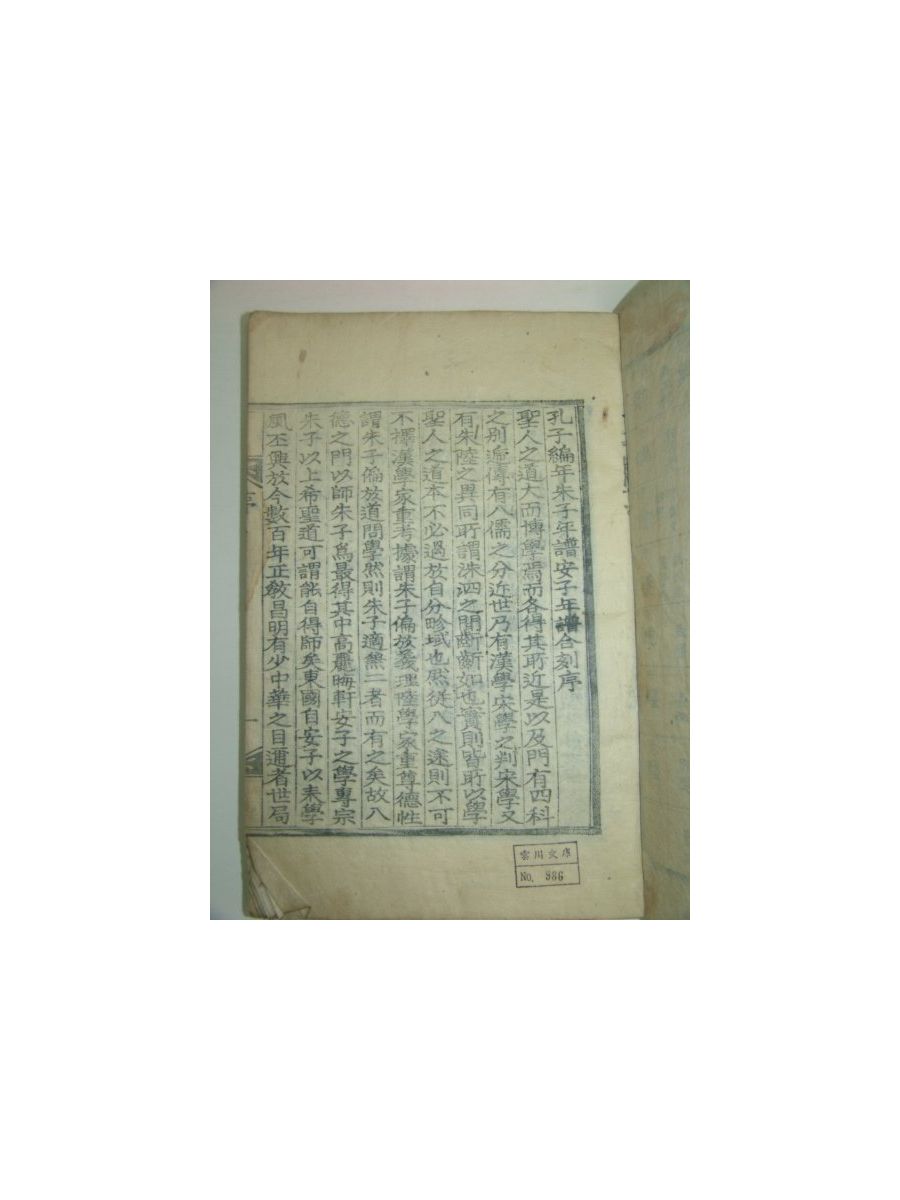 孔子編年朱子年譜安子年譜合刻序
聖人之道大而博學焉而各得其所近是以及門有四科
之別遞傳有八儒之分近世乃有漢學宋學之判宋學又
有朱陸之異同所謂洙泗之間齗齗如也實則皆所以學
聖人之道本不必過於自分畛域也然從入之途則不可
不擇漢學家重考據謂朱子偏於義理陸學家重尊德性
謂朱子偏於道問學然則朱子適無二者而有之矣故入
德之門以師朱子爲最得其中高麗晦軒安子之學專宗
朱子以上希聖道可謂能自得師矣東國自安子以來學
風丕興於今數百年正教昌明有少中華之目邇者世局
序
一
雲川文庫
No. 986